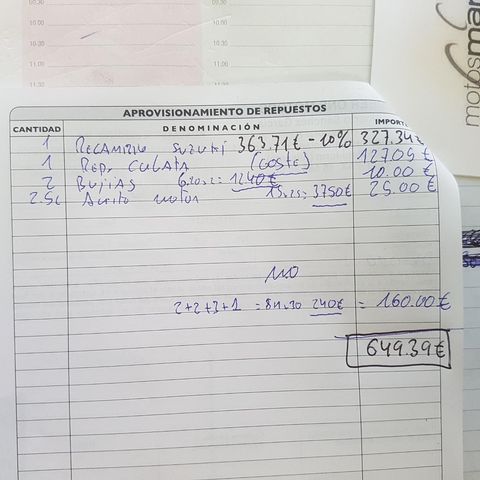 10.30
11.00
10.00
10.30
11.00
motosmar
APROVISIONAMIENTO DE REPUESTOS
CANTIDAD DENOMINACIÓN IMPORT
1 RECAMBIO SUZUKI 363.71€ -10% 327.34€
1 REP. CULATA (COSTE) 127.05€
2 BUJIAS 6.20x2= 12.40€ 10.00€
2.5L Aceite motor 15x2.5= 37.50€ 25.00€
NO
2+2+3+1 = 8H x 30 240€ = 160.00€
649.39€